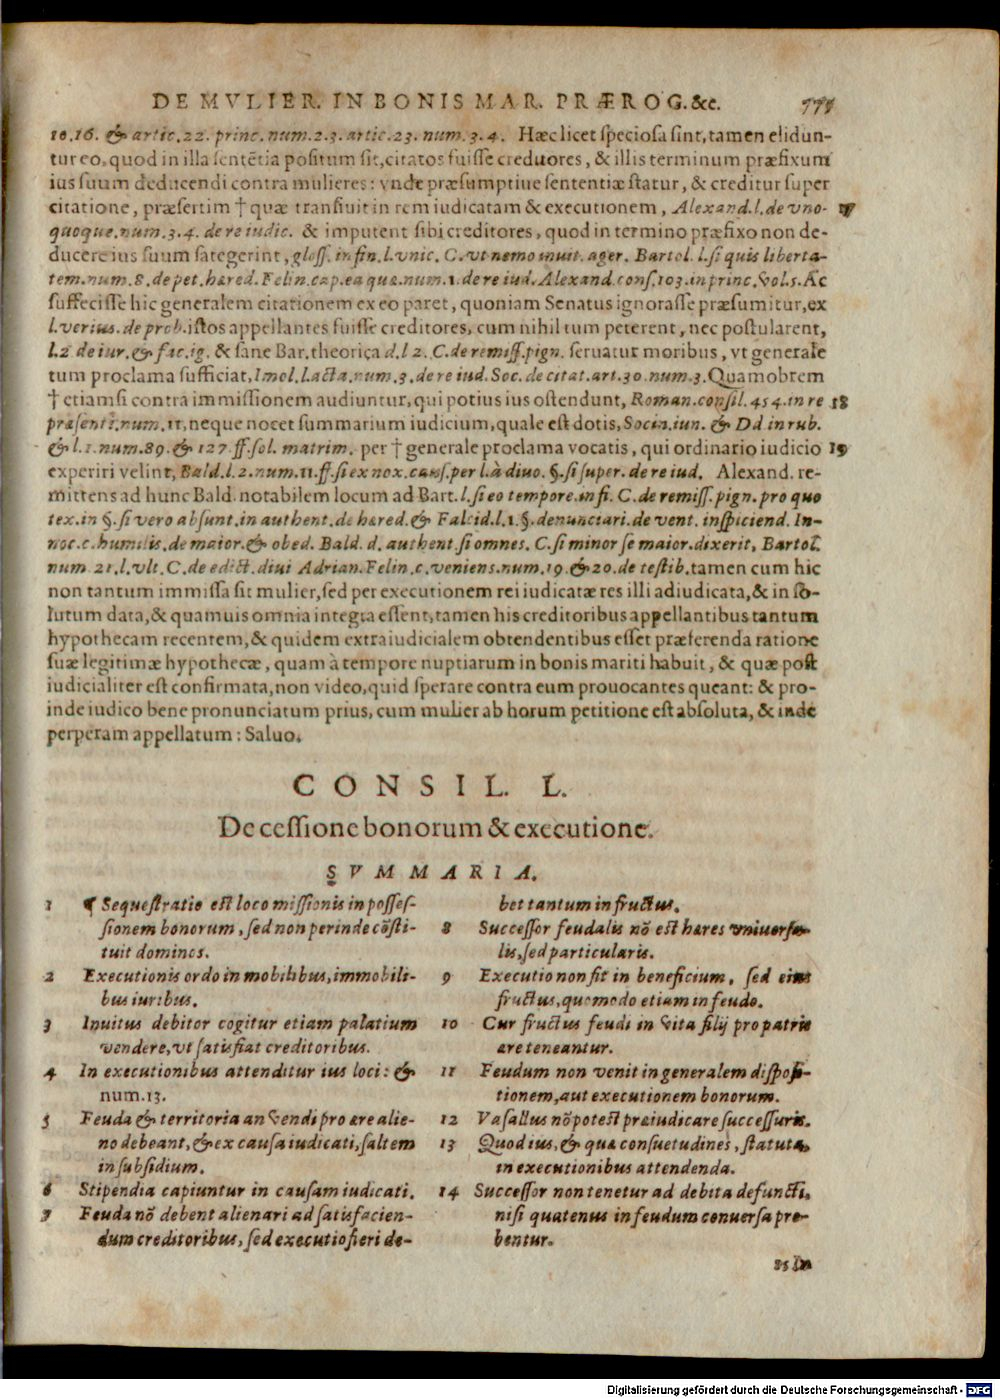 DE MVLIER. IN BONIS MAR. PRÆROG. &c.
10.16. & artic. 22. princ. num. 2. 3. artic. 23. num. 3. 4. Hæc licet speciosa sint, tamen elidun-
tur eo, quod in illa sentētia positum sit, citatos fuisse creditores, & illis terminum præfixum
ius suum deducendi contra mulieres: vnde præsumptiue sententiæ statur, & creditur super
citatione, præsertim † quæ transiuit in rem iudicatam & executionem, Alexand. l. de vno- 17
quoque. num. 3. 4. de re iudic. & imputent sibi creditores, quod in termino præfixo non de-
ducere ius suum sategerint, gloss. in fin. l. vnic. C. vt nemo inuit. ager. Bartol. l. si quis liberta-
tem. num. 8. de pet. hæred. Felin. cap. ea quæ. num. 1. de re iud. Alexand. cons. 103. in princ. vol. 5. Ac
suffecisse hic generalem citationem ex eo paret, quoniam Senatus ignorasse præsumitur, ex
l. verius. de prob. istos appellantes fuisse creditores, cum nihil tum peterent, nec postularent,
l. 2 de iur. & fac. ig. & sane Bar. theorica d. l 2. C. de remiss. pign. seruatur moribus, vt generale
tum proclama sufficiat, Imol. l. acta. num. 3. de re iud. Soc. de citat. art. 30. num. 3. Quamobrem
† etiamsi contra immissionem audiuntur, qui potius ius ostendunt, Roman. consil. 454. in re 18
præsenti. num. 11. neque nocet summarium iudicium, quale est dotis, Socin. iun. & Dd. in rub.
& l. 1. num. 89. & 127. ff. sol. matrim. per † generale proclama vocatis, qui ordinario iudicio 19
experiri velint, Bald. l. 2. num. 11. ff. si ex nox. caus. per l. à diuo. §. si super. de re iud. Alexand. re-
mittens ad hunc Bald. notabilem locum ad Bart. l. si eo tempore. in fi. C. de remiss. pign. pro quo
tex. in §. si vero absunt. in authent. de hæred. & Falcid. l. 1. §. denunciari. de vent. inspiciend. In-
noc. c. humilis. de maior. & obed. Bald. d. authent. si omnes. C. si minor se maior. dixerit, Bartol.
num. 21. l. vlt. C. de edict. diui Adrian. Felin. c. veniens. num. 19. & 20. de testib. tamen cum hic
non tantum immissa sit mulier, sed per executionem rei iudicatæ res illi adiudicata, & in so-
lutum data, & quamuis omnia integra essent, tamen his creditoribus appellantibus tantum
hypothecam recentem, & quidem extraiudicialem obtendentibus esset præferenda ratione
suæ legitimæ hypothecæ, quam à tempore nuptiarum in bonis mariti habuit, & quæ post
iudicialiter est confirmata, non video, quid sperare contra eum prouocantes queant: & pro-
inde iudico bene pronunciatum prius, cum mulier ab horum petitione est absoluta, & inde
perperam appellatum: Saluo.
CONSIL. L.
De cessione bonorum & executione.
SVMMARIA.
1 ¶ Sequestratio est loco missionis in posses-
sionem bonorum, sed non perinde cōsti-
tuit dominos.
2 Executionis ordo in mobilibus, immobili-
bus iuribus.
3 Inuitus debitor cogitur etiam palatium
vendere, vt satisfiat creditoribus.
4 In executionibus attenditur ius loci: &
num. 13.
5 Feuda & territoria an vendi pro ære alie-
no debeant, & ex causa iudicati, saltem
in subsidium.
6 Stipendia capiuntur in causam iudicati.
7 Feuda nō debent alienari ad satisfacien-
dum creditoribus, sed executio fieri de-
bet tantum in fructus.
8 Successor feudalis nō est hæres vniuersa-
lis, sed particularis.
9 Executio non fit in beneficium, sed eius
fructus, quomodo etiam in feudo.
10 Cur fructus feudi in vita filij pro patris
ære teneantur.
11 Feudum non venit in generalem disposi-
tionem, aut executionem bonorum.
12 Vasallus nō potest præiudicare successuris.
13 Quod ius, & quæ consuetudines, statuta,
in executionibus attendenda.
14 Successor non tenetur ad debita defuncti,
nisi quatenus in feudum conuersa pro-
bentur.
15 In
Digitalisierung gefördert durch die Deutsche Forschungsgemeinschaft - DFG